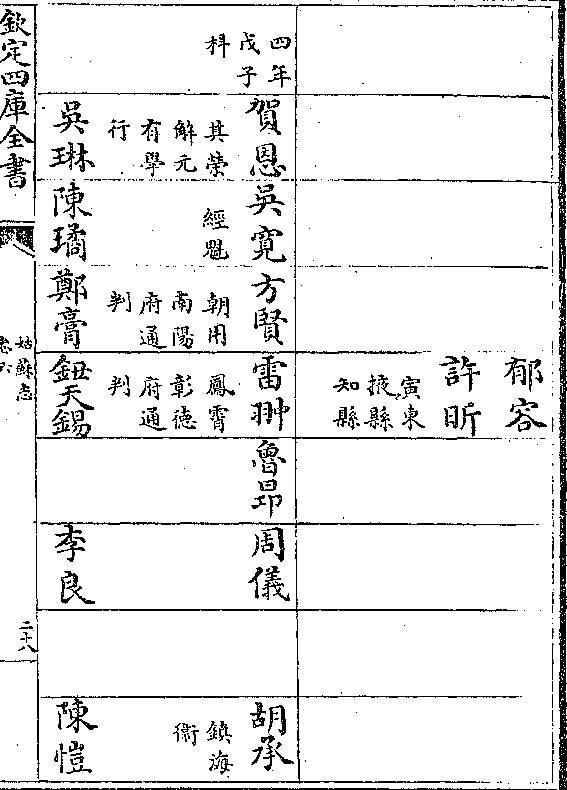 郁容
許昕
寅東
掖縣
知縣
四年
戊子
科
賀恩
其榮
解元
有學
行
吳寛
經魁
方賢
朝用
南陽
府通
判
雷翀
鳳霄
彰德
府通
判
魯昂
周儀
胡承
鎮海
衞
吳琳
陳璚
鄭膏
鈕天錫
李良
陳愷
欽定四庫全書
姑蘇志
卷六
二十八